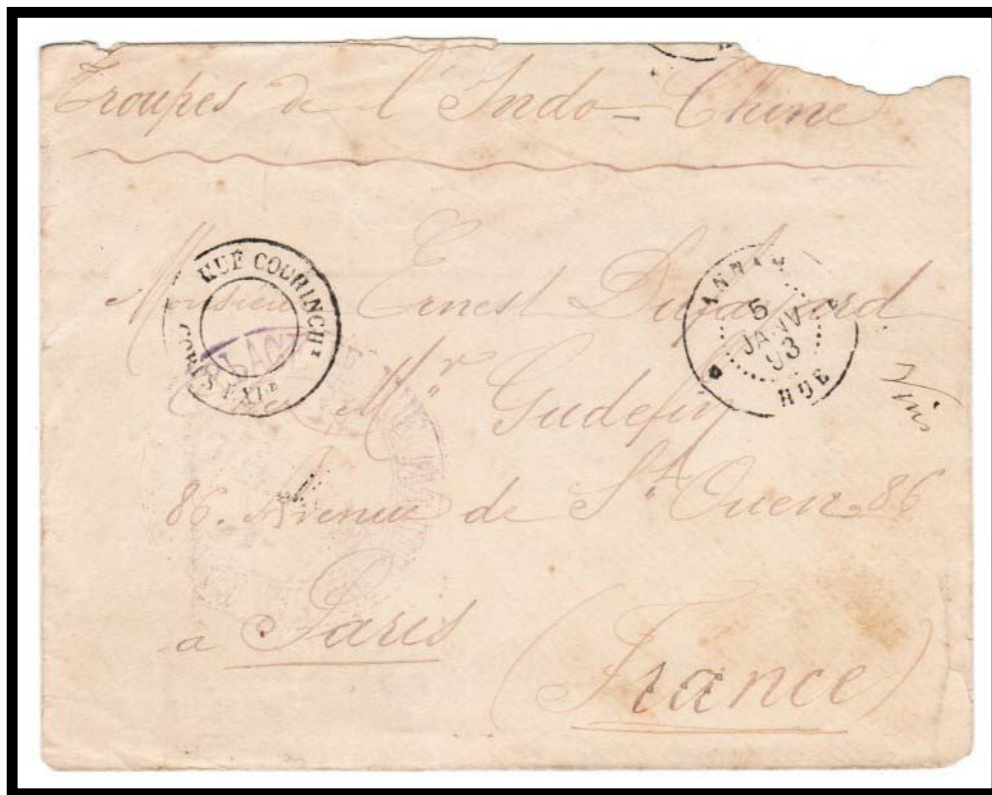 Troupes de l'Indo-Chine
HUÉ COCHINCHE
CORPS EXPR
ANNAM
5
JANV
93
HUE
PLACE DE
Monsieur Ernest
Chez Mr Gudefin
86. Avenue de St Ouen. 86
à Paris
(France)